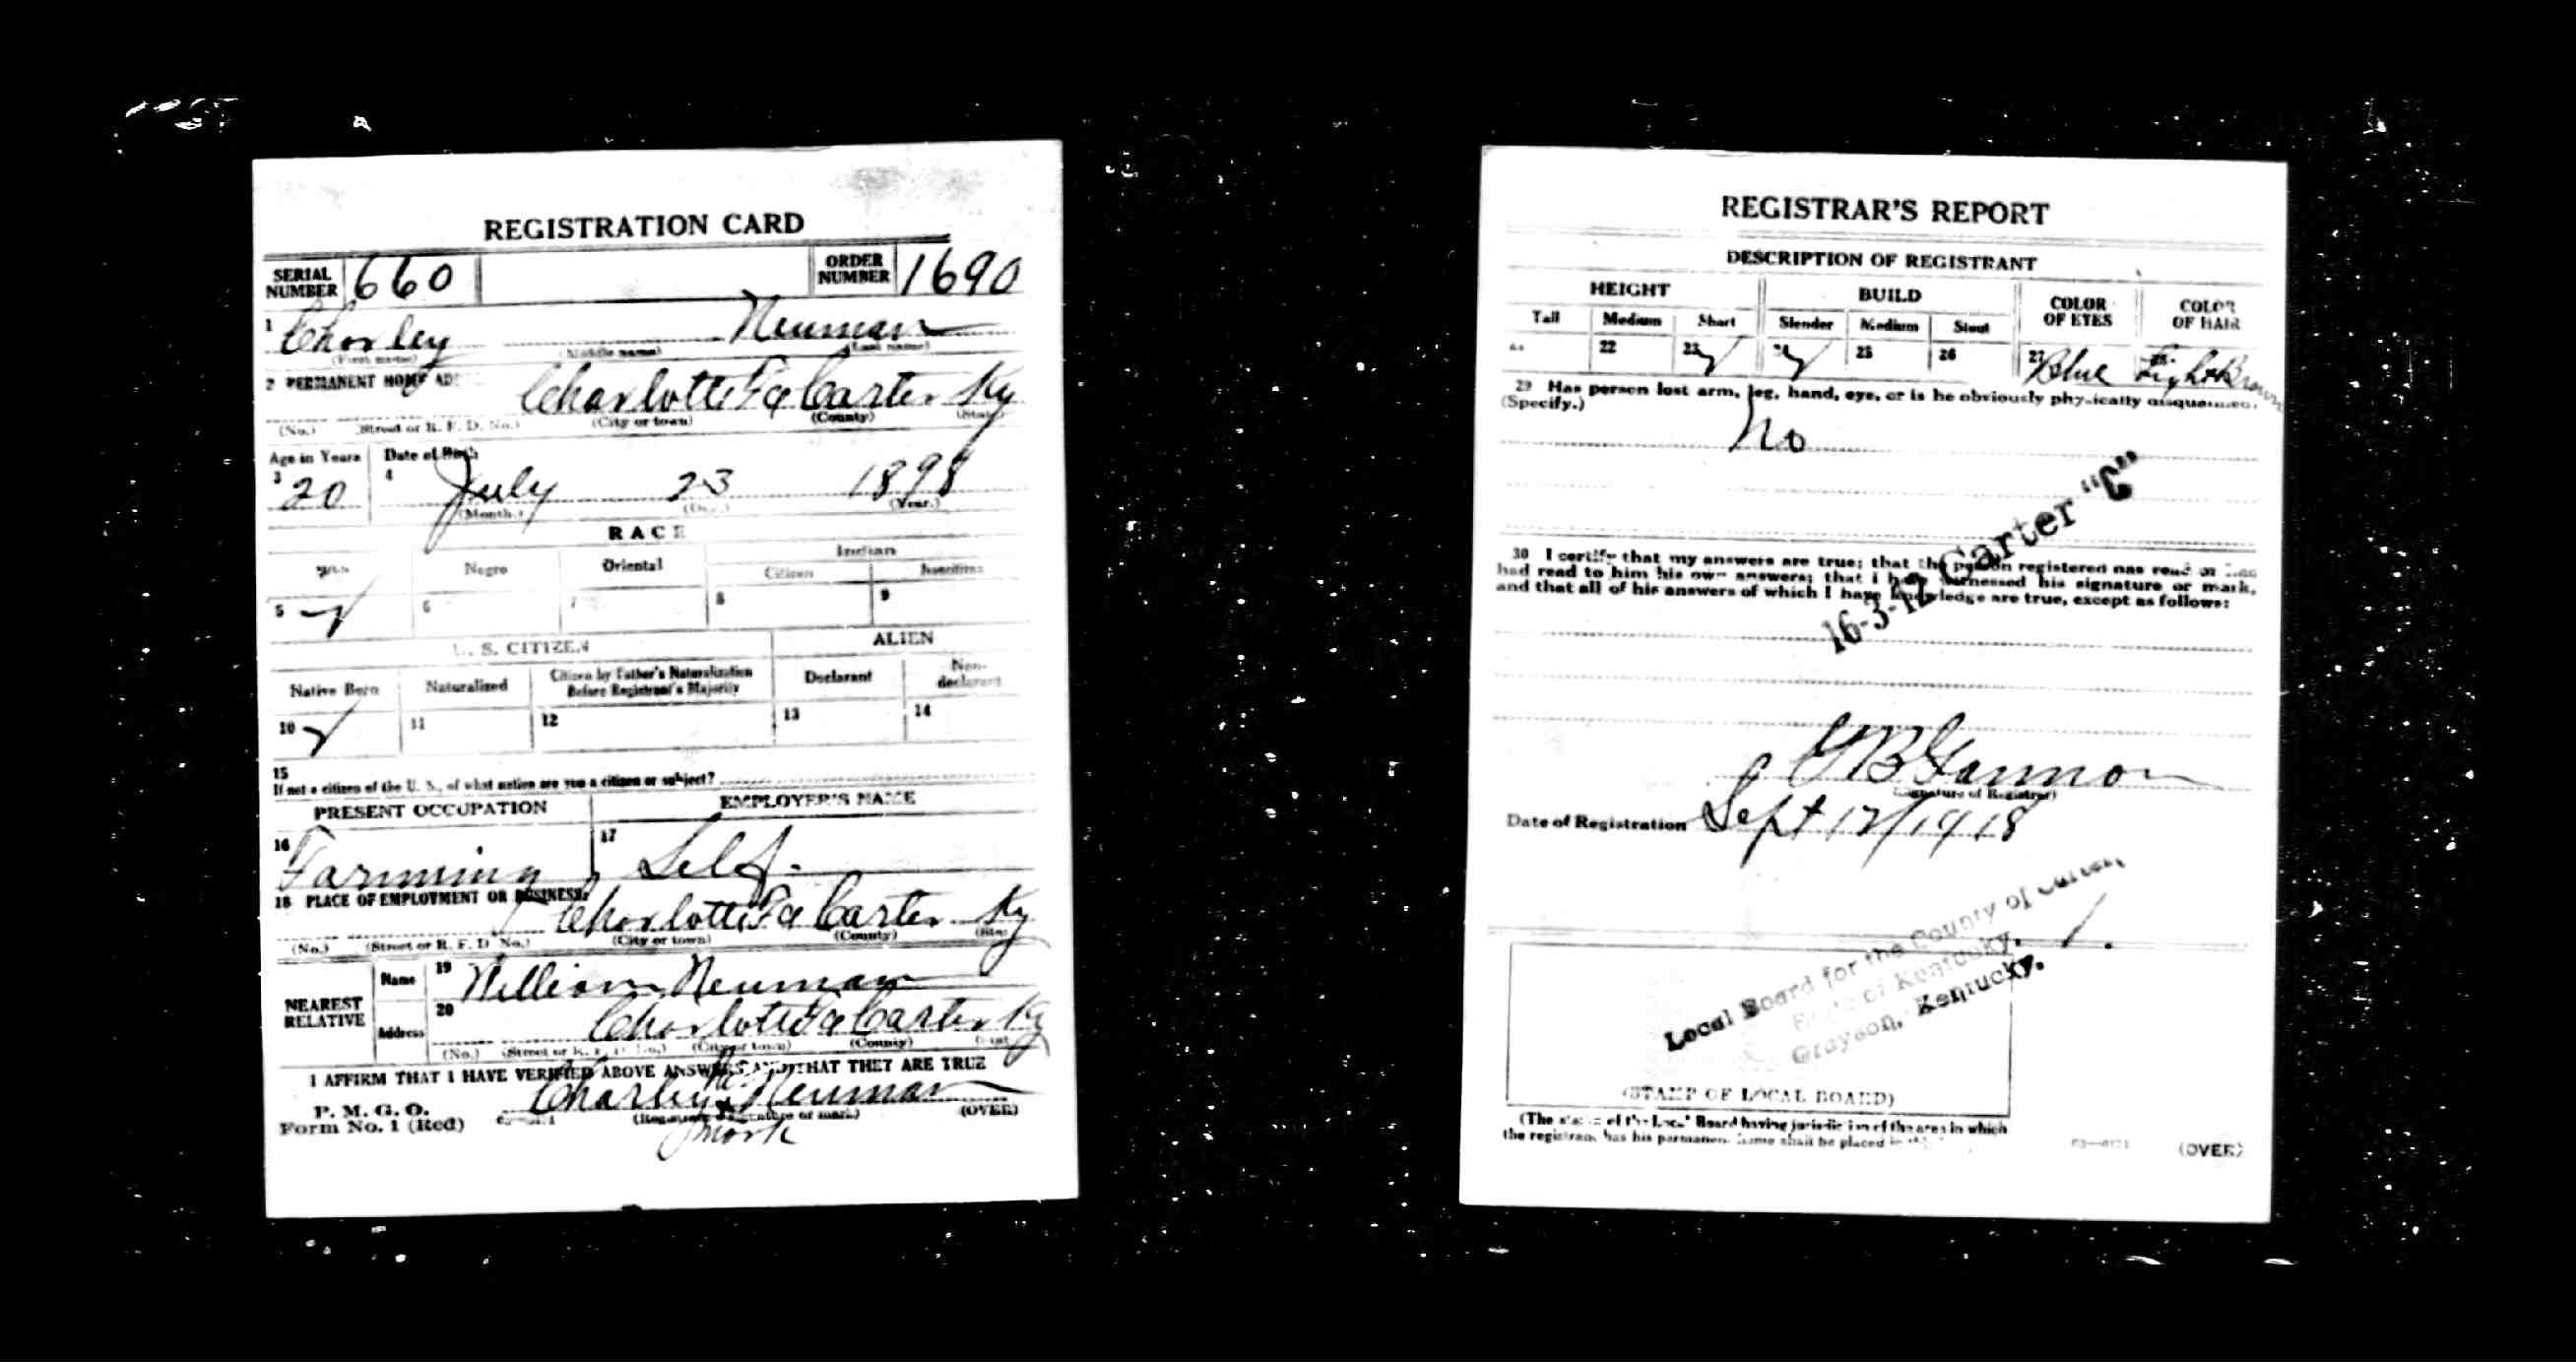 REGISTRATION CARD
SERIAL NUMBER 660 ORDER NUMBER 1690
1 Charley Neuman
(First name) (Middle name) (Last name)
2 PERMANENT HOME AD
Charlotte Fa Carter Ky
(No.) (Street or R. F. D. No.) (City or town) (County) (State)
Age in Years Date of Birth
3 20 4 July 23 1898
(Month.) (Day.) (Year.)
RACE
Negro Oriental Indian
Citizen Noncitizen
5 6 7 8 9
U. S. CITIZEN ALIEN
Native Born Naturalized Citizen by Father's Naturalization Before Registrant's Majority Declarant Non-declarant
10 11 12 13 14
15
If not a citizen of the U. S., of what nation are you a citizen or subject?
PRESENT OCCUPATION EMPLOYER'S NAME
16 Farming 17 Self.
18 PLACE OF EMPLOYMENT OR BUSINESS:
Charlotte Fa Carter Ky
(No.) (Street or R. F. D. No.) (City or town) (County)
NEAREST RELATIVE Name 19 William Neuman
Address 20 Charlotte Fa Carter Ky
(No.) (City or town) (County)
I AFFIRM THAT I HAVE VERIFIED ABOVE ANSWERS AND THAT THEY ARE TRUE
P. M. G. O.
Form No. 1 (Red) Charley Neuman (OVER)
mark
REGISTRAR'S REPORT
DESCRIPTION OF REGISTRANT
HEIGHT BUILD COLOR OF EYES COLOR OF HAIR
Tall Medium Short Slender Medium Stout
22 23 24 25 26 27 Blue Light Brown
29 Has person lost arm, leg, hand, eye, or is he obviously physically
(Specify.)
No
16-3-12 Carter "C"
30 I certify that my answers are true; that the person registered has read or has
had read to him his own answers; that I have witnessed his signature or mark,
and that all of his answers of which I have knowledge are true, except as follows:
(Signature of Registrar)
Date of Registration Sept 12/1918
Local Board for the County of Carter,
State of Kentucky,
Grayson, Kentucky.
(STAMP OF LOCAL BOARD)
(The stamp of the Local Board having jurisdiction of the area in which
the registrant has his permanent home shall be placed in
(OVER)